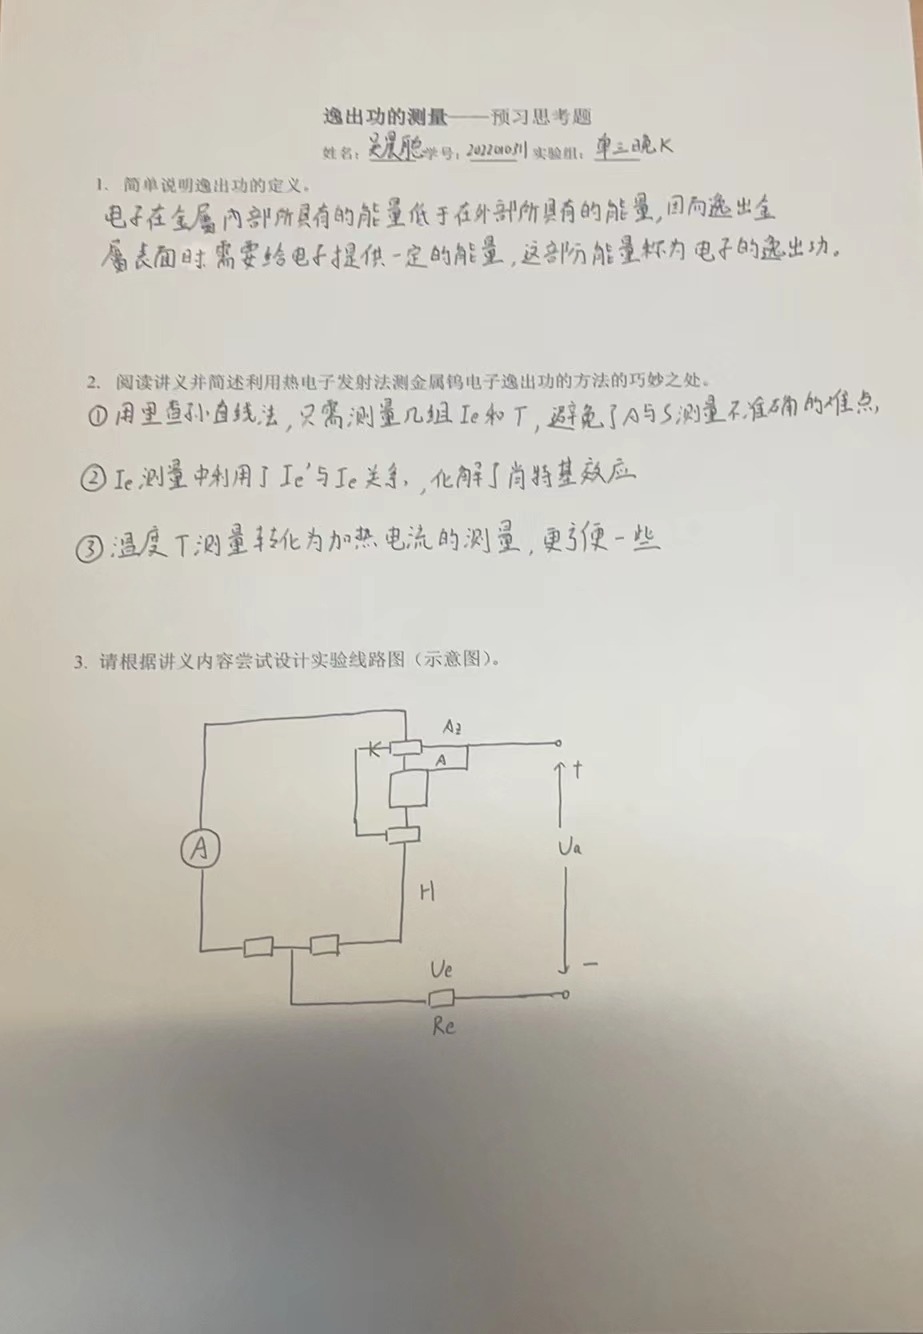 逸出功的测量——预习思考题
姓名：吴晨聪 学号：2022010311 实验组：单三晚K
1. 简单说明逸出功的定义。
电子在金属内部所具有的能量低于在外部所具有的能量，因而逸出金
属表面时需要给电子提供一定的能量，这部分能量称为电子的逸出功。
2. 阅读讲义并简述利用热电子发射法测金属钨电子逸出功的方法的巧妙之处。
①用里查孙直线法，只需测量几组Ie和T，避免了A与S测量不准确的难点，
②Ie测量中利用了Ie'与Ie关系，化解了肖特基效应
③温度T测量转化为加热电流的测量，更方便一些
3. 请根据讲义内容尝试设计实验线路图（示意图）。
A2
A
+
A
Ua
H
Ue
−
Re